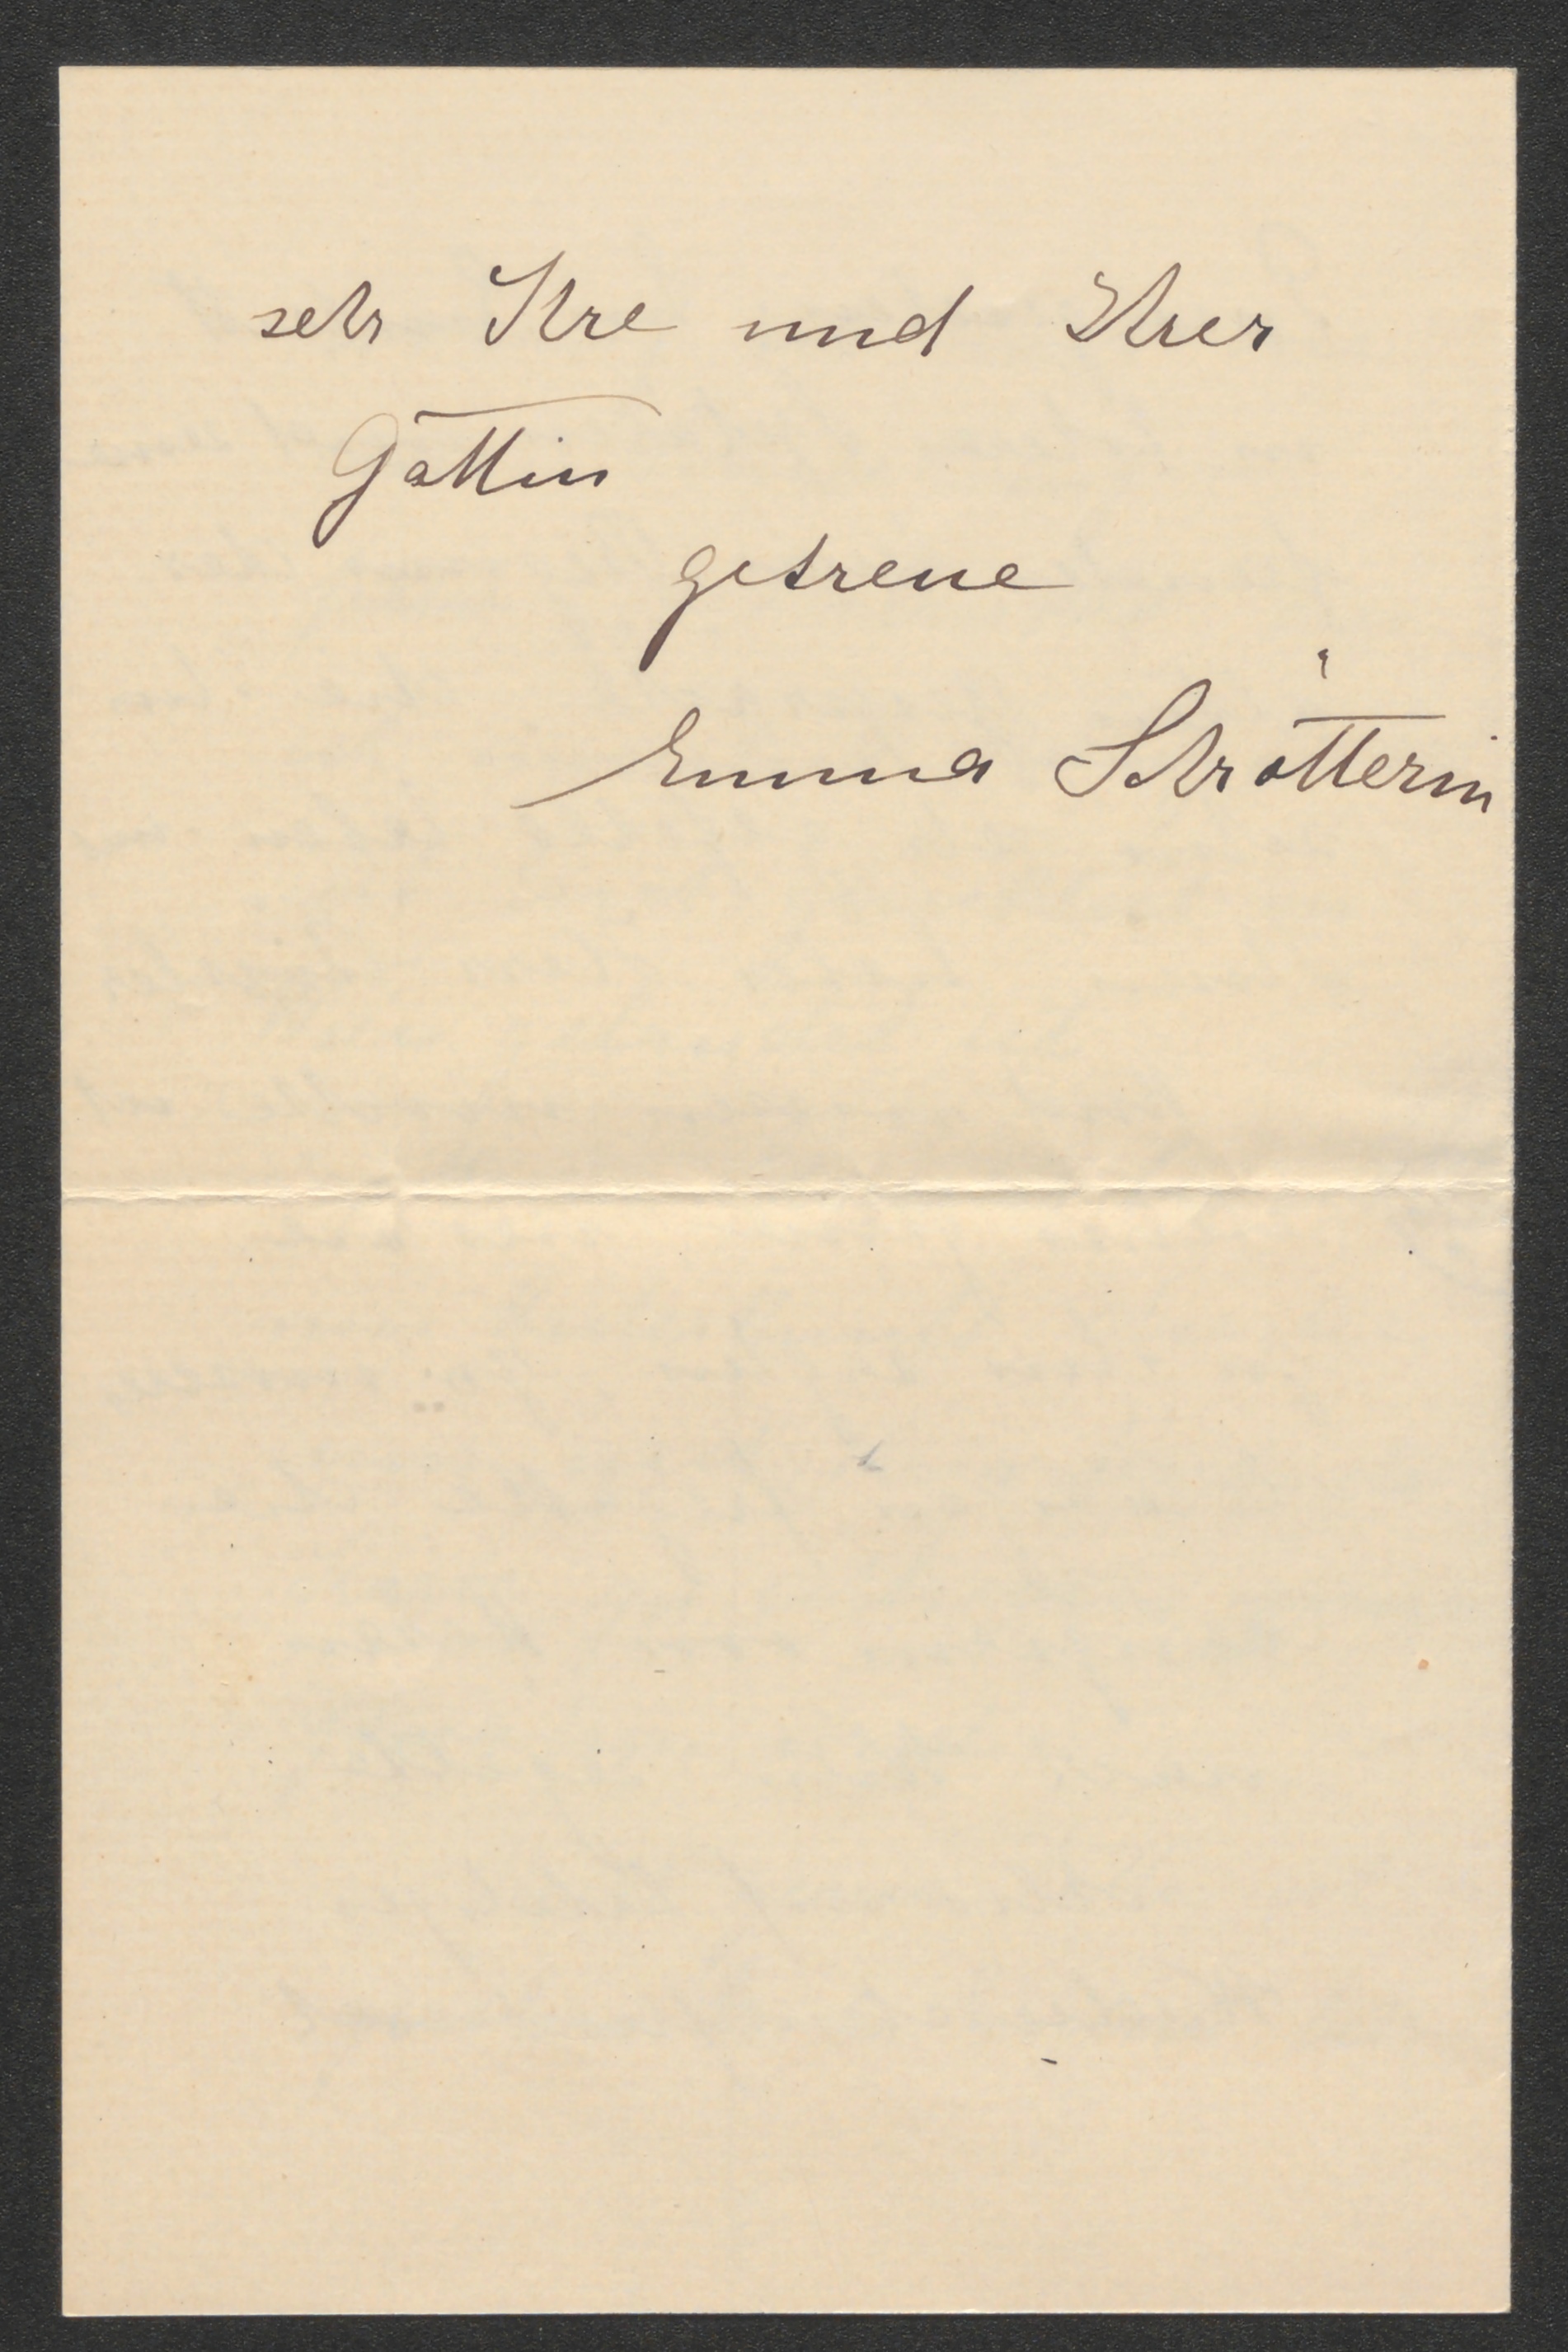 sehr Ihre und Ihrer
Gattin
getreue
Emma Schrötterin